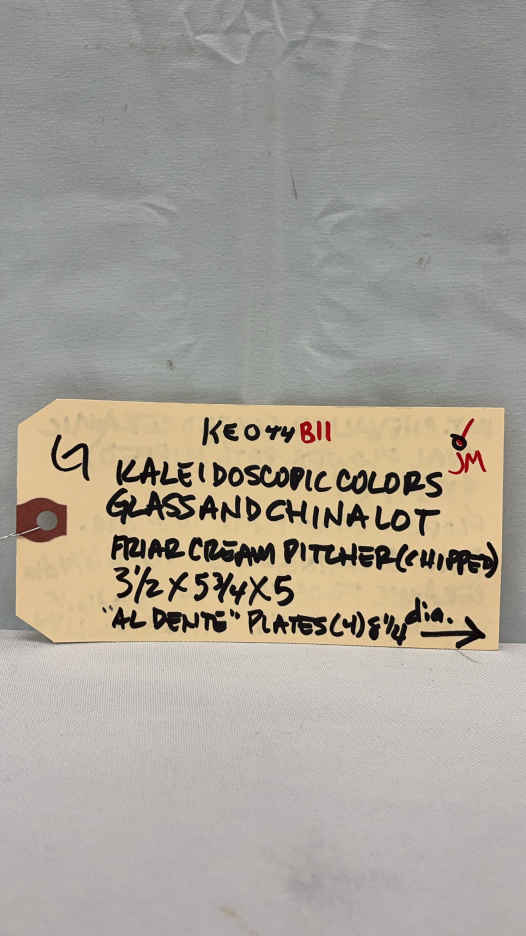 KEO44 B11
G
JM
KALEIDOSCOPIC COLORS
GLASS AND CHINA LOT
FRIAR CREAM PITCHER (CHIPPED)
3 1/2 X 5 3/4 X 5
"AL DENTE" PLATES (4) 8 1/4 dia. →